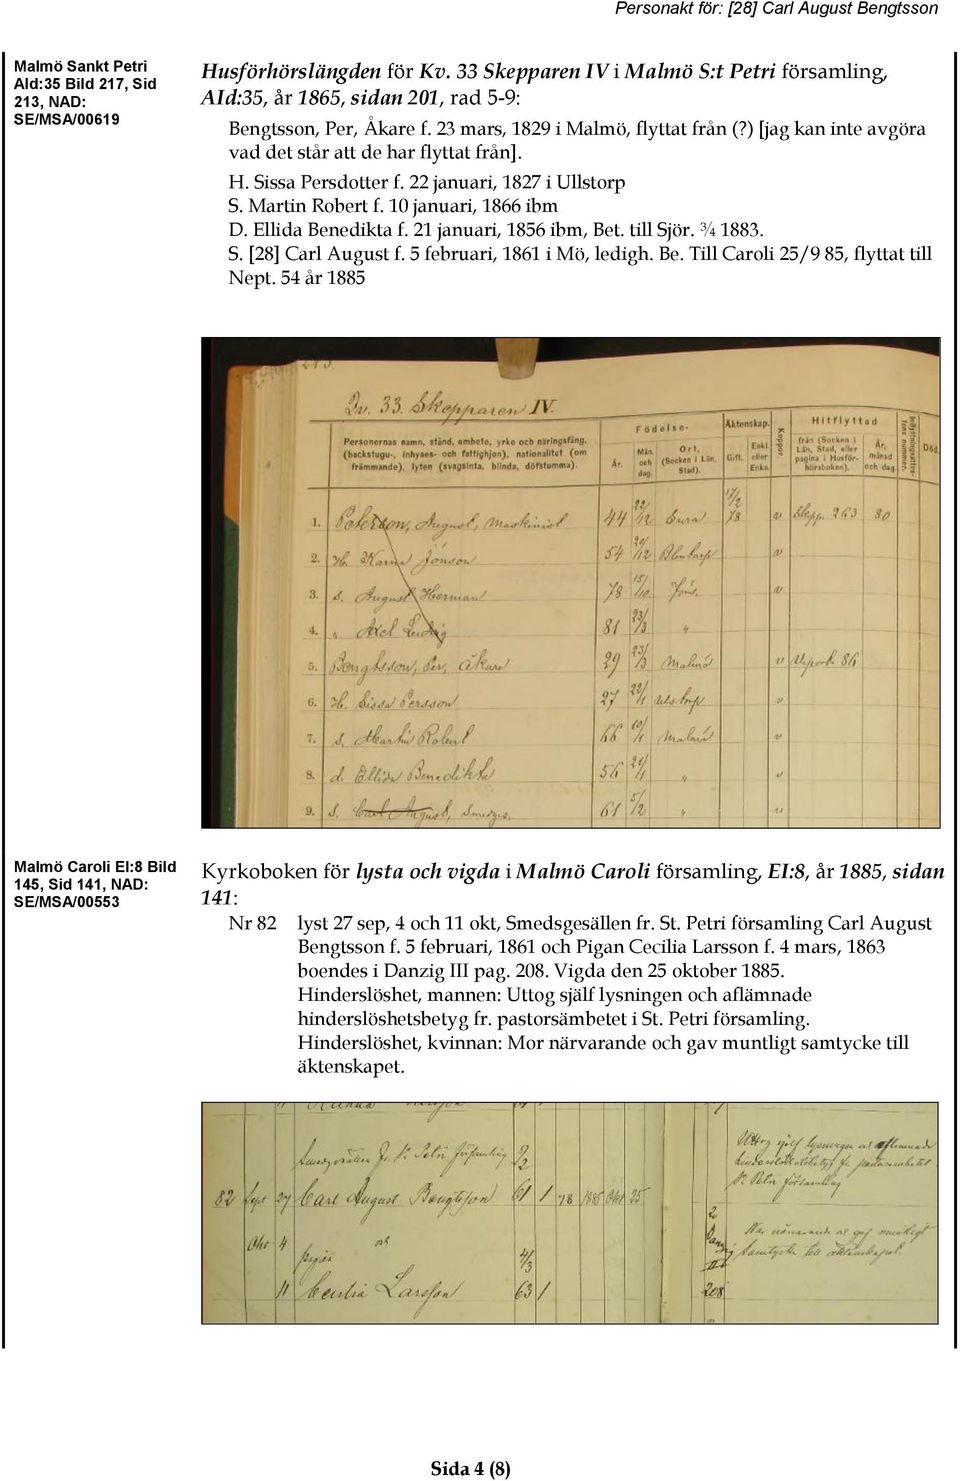 Personakt för: [28] Carl August Bengtsson
Malmö Sankt Petri
AId:35 Bild 217, Sid
213, NAD:
SE/MSA/00619
Husförhörslängden för Kv. 33 Skepparen IV i Malmö S:t Petri församling,
AId:35, år 1865, sidan 201, rad 5-9:
Bengtsson, Per, Åkare f. 23 mars, 1829 i Malmö, flyttat från (?) [jag kan inte avgöra
vad det står att de har flyttat från].
H. Sissa Persdotter f. 22 januari, 1827 i Ullstorp
S. Martin Robert f. 10 januari, 1866 ibm
D. Ellida Benedikta f. 21 januari, 1856 ibm, Bet. till Sjör. ¾ 1883.
S. [28] Carl August f. 5 februari, 1861 i Mö, ledigh. Be. Till Caroli 25/9 85, flyttat till
Nept. 54 år 1885
Qv. 33. Skepparen IV.
Personernas namn, stånd, embete, yrke och näringsfång,
(backstugu-, inhyses- och fattighjon), nationalitet (om
främmande), lyten (svagsinta, blinda, döfstumma).
Födelse-
År.
Mån. och dag.
Ort, (Socken i Län, Stad).
Äktenskap.
Gift.
Enkl. eller Enka.
Koppor.
Hitflyttad
från (Socken i Län, Stad, eller pagina i Husförhörsboken).
År, månad och dag.
Inflyttningsattestens nummer.
Död
1. Peterson, August, Maskinist 44 22/12 Eura 17/2 78 v Skepp. 263 80
2. H. Karna Jönson 54 20/12 Blentarp v
3. S. August Herman 78 15/10 Jons. v
4. " Axel Ludvig 81 23/3 "
5. Bengtsson, Per, åkare 29 23/3 Malmö v 86
6. H. Sissa Persson 27 22/1 Ulstorp v
7. S. Martin Robert 66 10/1 Malmö v
8. d. Ellida Benedikta 56 21/1 " v
9. S. Carl August, Smedges. 61 5/2 " v
Malmö Caroli EI:8 Bild
145, Sid 141, NAD:
SE/MSA/00553
Kyrkoboken för lysta och vigda i Malmö Caroli församling, EI:8, år 1885, sidan
141:
Nr 82 lyst 27 sep, 4 och 11 okt, Smedsgesällen fr. St. Petri församling Carl August
Bengtsson f. 5 februari, 1861 och Pigan Cecilia Larsson f. 4 mars, 1863
boendes i Danzig III pag. 208. Vigda den 25 oktober 1885.
Hinderslöshet, mannen: Uttog själf lysningen och aflämnade
hinderslöshetsbetyg fr. pastorsämbetet i St. Petri församling.
Hinderslöshet, kvinnan: Mor närvarande och gav muntligt samtycke till
äktenskapet.
Smedgesällen fr. St Petri församling 5/2
82 Sept 27 Carl August Bengtsson 61 1 78 1885 Okt 25
Okt 4 och
pigan 4/3
11 Cecilia Larsson 63 1
Danzig III 208
Uttog sjelf lysningen och aflemnade
hinderslöshetsbetyg fr. pastorsembetet i
St Petri församling
Mor närvarande och gaf muntligt
samtycke till äktenskapet.
Sida 4 (8)